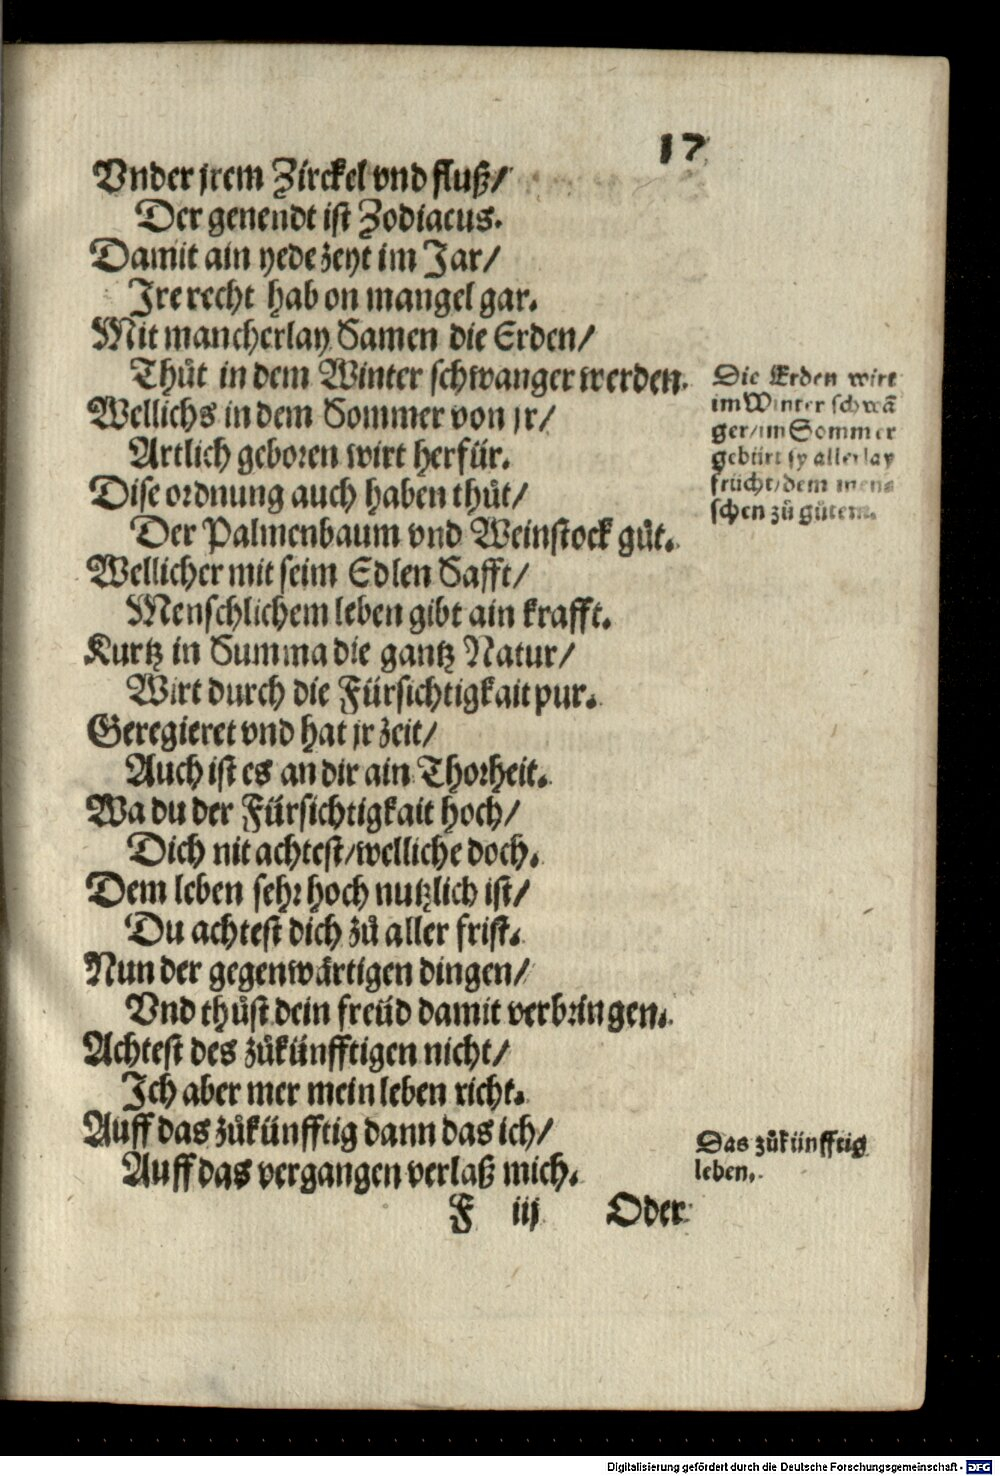 17
Vnder jrem Zirckel vnd fluß/
Der genendt ist Zodiacus.
Damit ain yede zeyt im Jar/
Jre recht hab on mangel gar.
Mit mancherlay Samen die Erden/
Thůt in dem Winter schwanger werden.
Wellichs in dem Sommer von jr/
Artlich geboren wirt herfür.
Dise ordnung auch haben thůt/
Der Palmenbaum vnd Weinstock gůt.
Wellicher mit seim Edlen Safft/
Menschlichem leben gibt ain krafft.
Kurtz in Summa die gantz Natur/
Wirt durch die Fürsichtigkait pur.
Geregieret vnd hat jr zeit/
Auch ist es an dir ain Thorheit.
Wa du der Fürsichtigkait hoch/
Dich nit achtest/welliche doch.
Dem leben sehr hoch nutzlich ist/
Du achtest dich zů aller frist.
Nun der gegenwärtigen dingen/
Vnd thůst dein freüd damit verbringen.
Achtest des zůkünfftigen nicht/
Ich aber mer mein leben richt.
Auff das zůkünfftig dann das ich/
Auff das vergangen verlaß mich.
Die Erden wirt
im Winter schwã
ger/im Sommer
gebürt sy allerlay
frücht/dem men-
schen zů gůtem.
Das zůkünfftig
leben.
F iij Oder
Digitalisierung gefördert durch die Deutsche Forschungsgemeinschaft - DFG